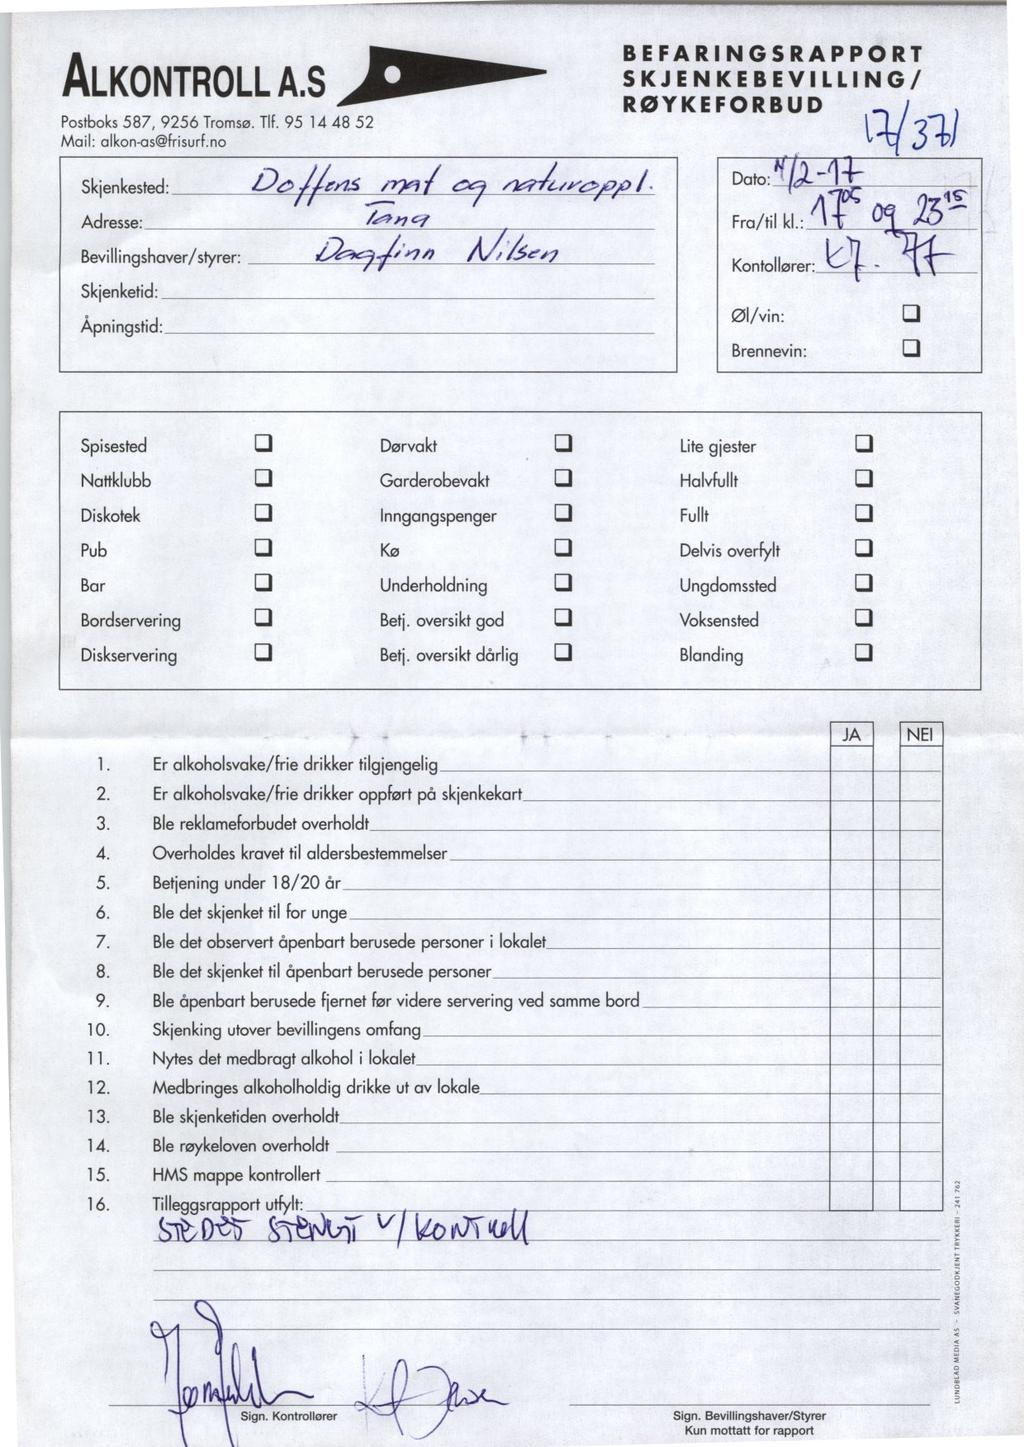 ALKONTROLL A.S
Postboks 587, 9256 Tromsø. Tlf. 95 14 48 52
Mail: alkon-as@frisurf.no
BEFARINGSRAPPORT
SKJENKEBEVILLING/
RØYKEFORBUD
17/371
Skjenkested: Doffens mat og naturoppl.
Adresse: Tana
Bevillingshaver/styrer: Dagfinn Nilsen
Skjenketid:
Åpningstid:
Dato: /2-17
Fra/til kl.: 17 05 og 23 15
Kontollører:
Øl/vin: ☐
Brennevin: ☐
Spisested ☐ Dørvakt ☐ Lite gjester ☐
Nattklubb ☐ Garderobevakt ☐ Halvfullt ☐
Diskotek ☐ Inngangspenger ☐ Fullt ☐
Pub ☐ Kø ☐ Delvis overfylt ☐
Bar ☐ Underholdning ☐ Ungdomssted ☐
Bordservering ☐ Betj. oversikt god ☐ Voksensted ☐
Diskservering ☐ Betj. oversikt dårlig ☐ Blanding ☐
JA NEI
1. Er alkoholsvake/frie drikker tilgjengelig
2. Er alkoholsvake/frie drikker oppført på skjenkekart
3. Ble reklameforbudet overholdt
4. Overholdes kravet til aldersbestemmelser
5. Betjening under 18/20 år
6. Ble det skjenket til for unge
7. Ble det observert åpenbart berusede personer i lokalet
8. Ble det skjenket til åpenbart berusede personer
9. Ble åpenbart berusede fjernet før videre servering ved samme bord
10. Skjenking utover bevillingens omfang
11. Nytes det medbragt alkohol i lokalet
12. Medbringes alkoholholdig drikke ut av lokale
13. Ble skjenketiden overholdt
14. Ble røykeloven overholdt
15. HMS mappe kontrollert
16. Tilleggsrapport utfylt:
STEDET STENGT V/ KONTROLL
Sign. Kontrollører
Sign. Bevillingshaver/Styrer
Kun mottatt for rapport
LUNDBLAD MEDIA AS - SVANEGODKJENT TRYKKERI - 241 762